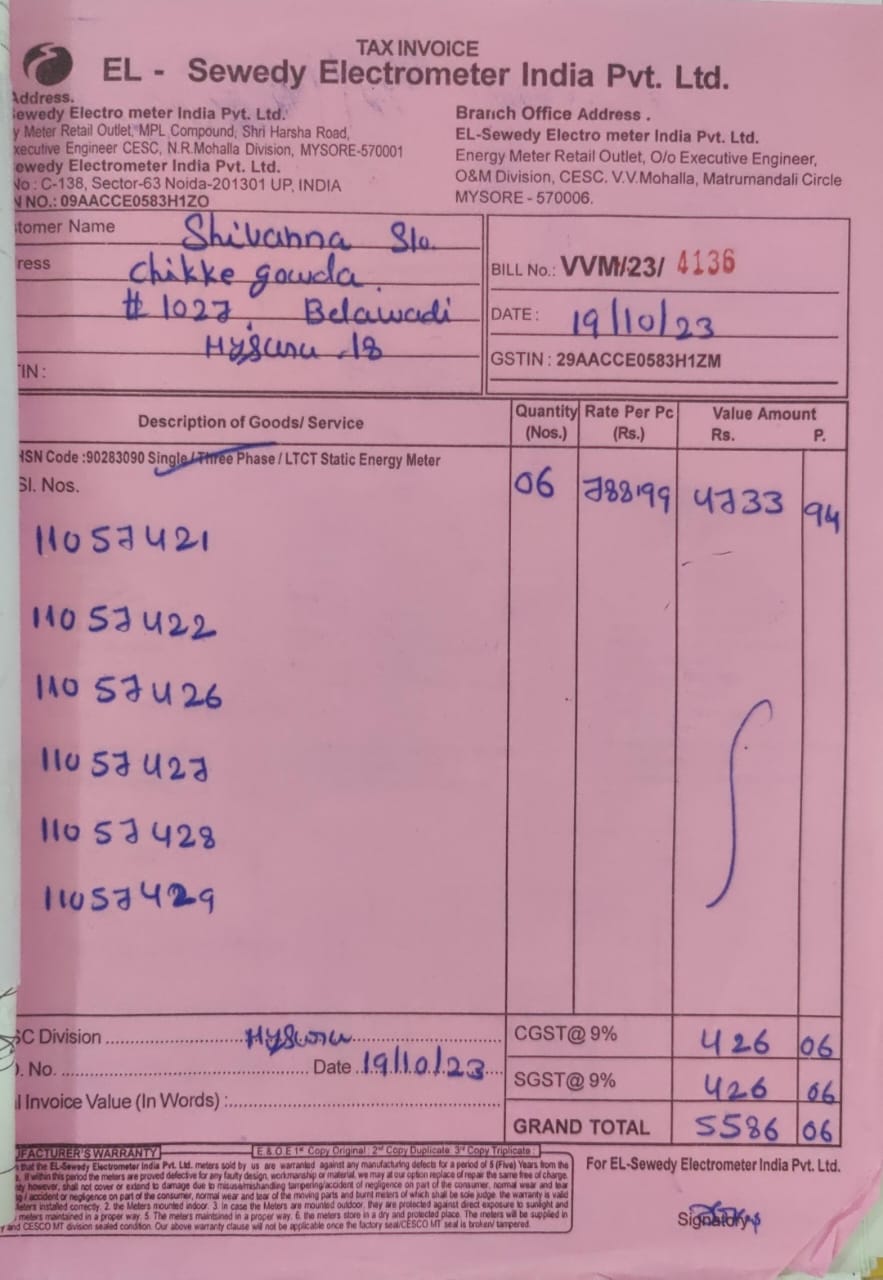 TAX INVOICE
EL - Sewedy Electrometer India Pvt. Ltd.
Address.
ewedy Electro meter India Pvt. Ltd.
y Meter Retail Outlet, MPL Compound, Shri Harsha Road,
xecutive Engineer CESC, N.R.Mohalla Division, MYSORE-570001
ewedy Electrometer India Pvt. Ltd.
No : C-138, Sector-63 Noida-201301 UP, INDIA
N NO.: 09AACCE0583H1ZO
Branch Office Address .
EL-Sewedy Electro meter India Pvt. Ltd.
Energy Meter Retail Outlet, O/o Executive Engineer,
O&M Division, CESC. V.V.Mohalla, Matrumandali Circle
MYSORE - 570006.
tomer Name Shivanna S/o.
ress Chikke gowda
# 1027, Belawadi
Mysuru -18
IN :
BILL No.: VVM/23/ 4136
DATE : 19/10/23
GSTIN : 29AACCE0583H1ZM
Description of Goods/ Service Quantity (Nos.) Rate Per Pc (Rs.) Value Amount Rs. P.
HSN Code :90283090 Single / Three Phase / LTCT Static Energy Meter
Sl. Nos. 06 788.99 4733 94
11057421
11057422
11057426
11057427
11057428
11057429
SC Division Mysuru CGST@ 9% 426 06
. No. Date 19/10/23 SGST@ 9% 426 06
l Invoice Value (In Words) : GRAND TOTAL 5586 06
UFACTURER'S WARRANTY E & O E 1st Copy Original : 2nd Copy Duplicate 3rd Copy Triplicate :
that the EL-Sewedy Electrometer India Pvt. Ltd. meters sold by us are warranted against any manufacturing defects for a period of 5 (Five) Years from the
. If within this period the meters are proved defective for any faulty design, workmanship or material, we may at our option replace of repair the same free of charge.
ty however, shall not cover or extend to damage due to misuse/mishandling tampering/accident of negligence on part of the consumer, normal wear and tear
g / accident or negligence on part of the consumer, normal wear and tear of the moving parts and burnt meters of which shall be sole judge. the warranty is valid
Meters installed correctly. 2. the Meters mounted indoor. 3. In case the Meters are mounted outdoor, they are protected against direct exposure to sunlight and
meters maintained in a proper way. 5. The meters maintained in a proper way. 6. the meters store in a dry and protected place. The meters will be supplied in
y and CESCO MT division sealed condition. Our above warranty clause will not be applicable once the factory seal/CESCO MT seal is broken/ tampered.
For EL-Sewedy Electrometer India Pvt. Ltd.
Signatory